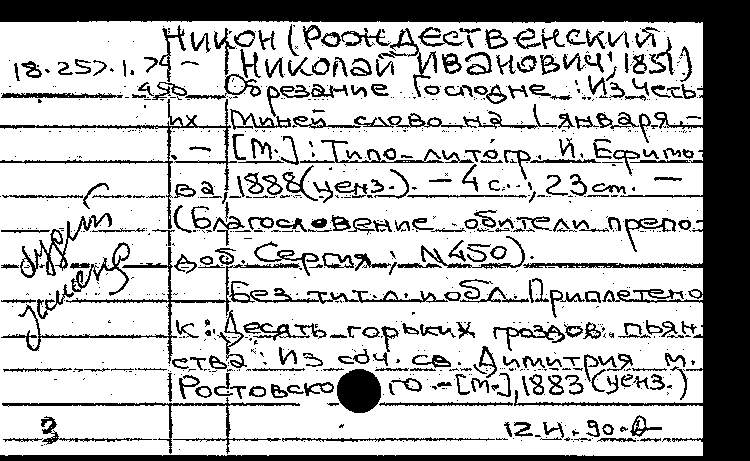 Никон (Рождественский,
18.257.1.74 – Николай Иванович; 1851)
450 Обрезание Господне : Из Четь-
их Миней слово на 1 января. –
. – [М.] : Типо-литогр. И. Ефимо-
ва, 1888 (ценз.). – 4 с. ; 23 см. –
(Благословение обители препо-
доб. Сергия ; N450).
Без тит. л. и обл. Приплетено
к : Десять горьких гроздов пьян-
ства : Из соч. св. Димитрия м.
Ростовского. – [М.], 1883 (ценз.)
будет
3
12.И.90.